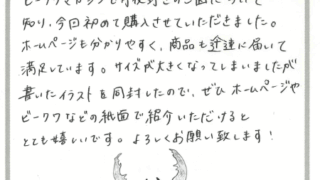 知り、今回初めて購入させていただきました。
ホームページも分かりやすく、商品も迅速に届いて
満足しています。サイズが大きくなってしまいましたが
書いたイラストを同封したので、ぜひホームページや
ビークワなどの紙面で紹介いただけると
とても嬉しいです。よろしくお願い致します!